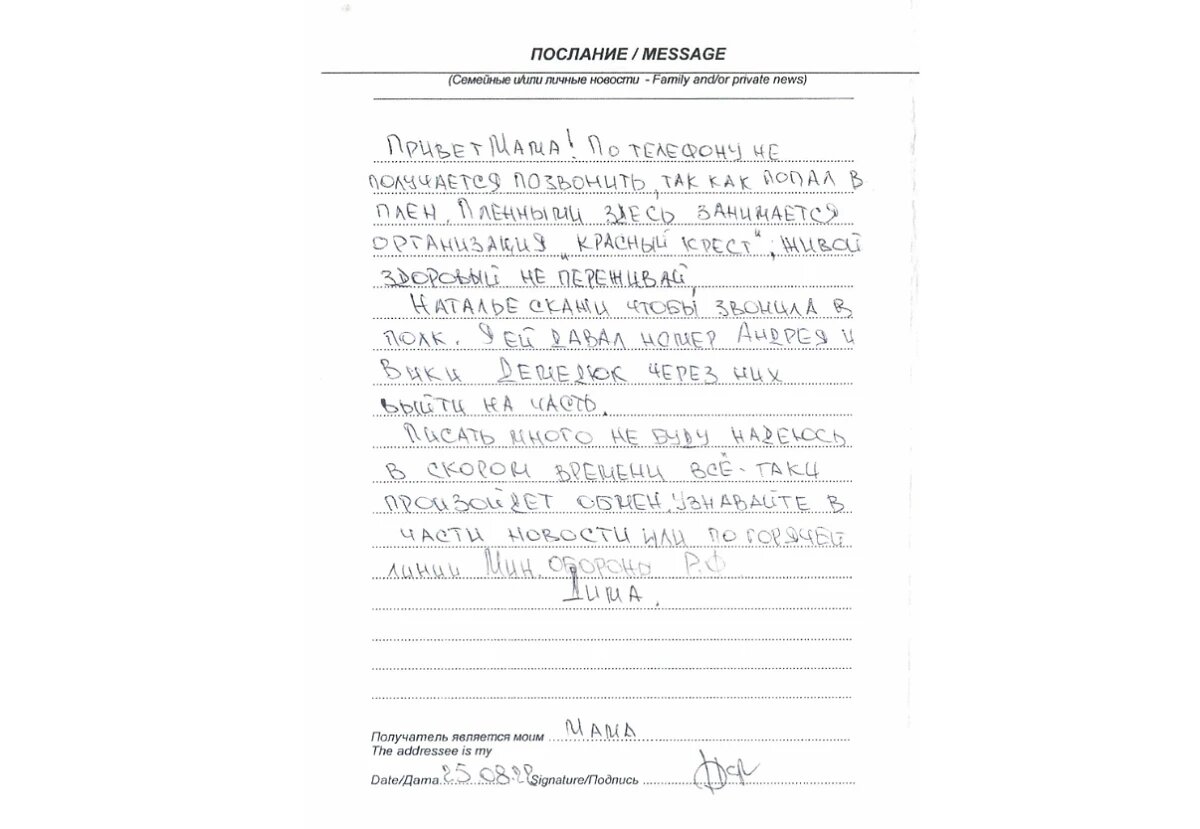 ПОСЛАНИЕ / MESSAGE
(Семейные и/или личные новости - Family and/or private news)
ПРИВЕТ МАМА! ПО ТЕЛЕФОНУ НЕ
ПОЛУЧАЕТСЯ ПОЗВОНИТЬ, ТАК КАК ПОПАЛ В
ПЛЕН. ПЛЕННЫМИ ЗДЕСЬ ЗАНИМАЕТСЯ
ОРГАНИЗАЦИЯ „КРАСНЫЙ КРЕСТ", ЖИВОЙ
ЗДОРОВЫЙ НЕ ПЕРЕЖИВАЙ,
НАТАЛЬЕ СКАЖИ ЧТОБЫ ЗВОНИЛА В
ПОЛК. Я ЕЙ ДАВАЛ НОМЕР АНДРЕЯ И
ВИКИ ЧЕРЕЗ НИХ
ВЫЙТИ НА ЧАСТЬ.
ПИСАТЬ МНОГО НЕ БУДУ НАДЕЮСЬ
В СКОРОМ ВРЕМЕНИ ВСЁ-ТАКИ
ПРОИЗОЙДЕТ ОБМЕН. УЗНАВАЙТЕ В
ЧАСТИ НОВОСТИ ИЛИ ПО ГОРЯЧЕЙ
ЛИНИИ МИН. ОБОРОНЫ Р.Ф
ДИМА.
Получатель является моим МАМА
The addressee is my
Date/Дата 25.08.22 Signature/Подпись